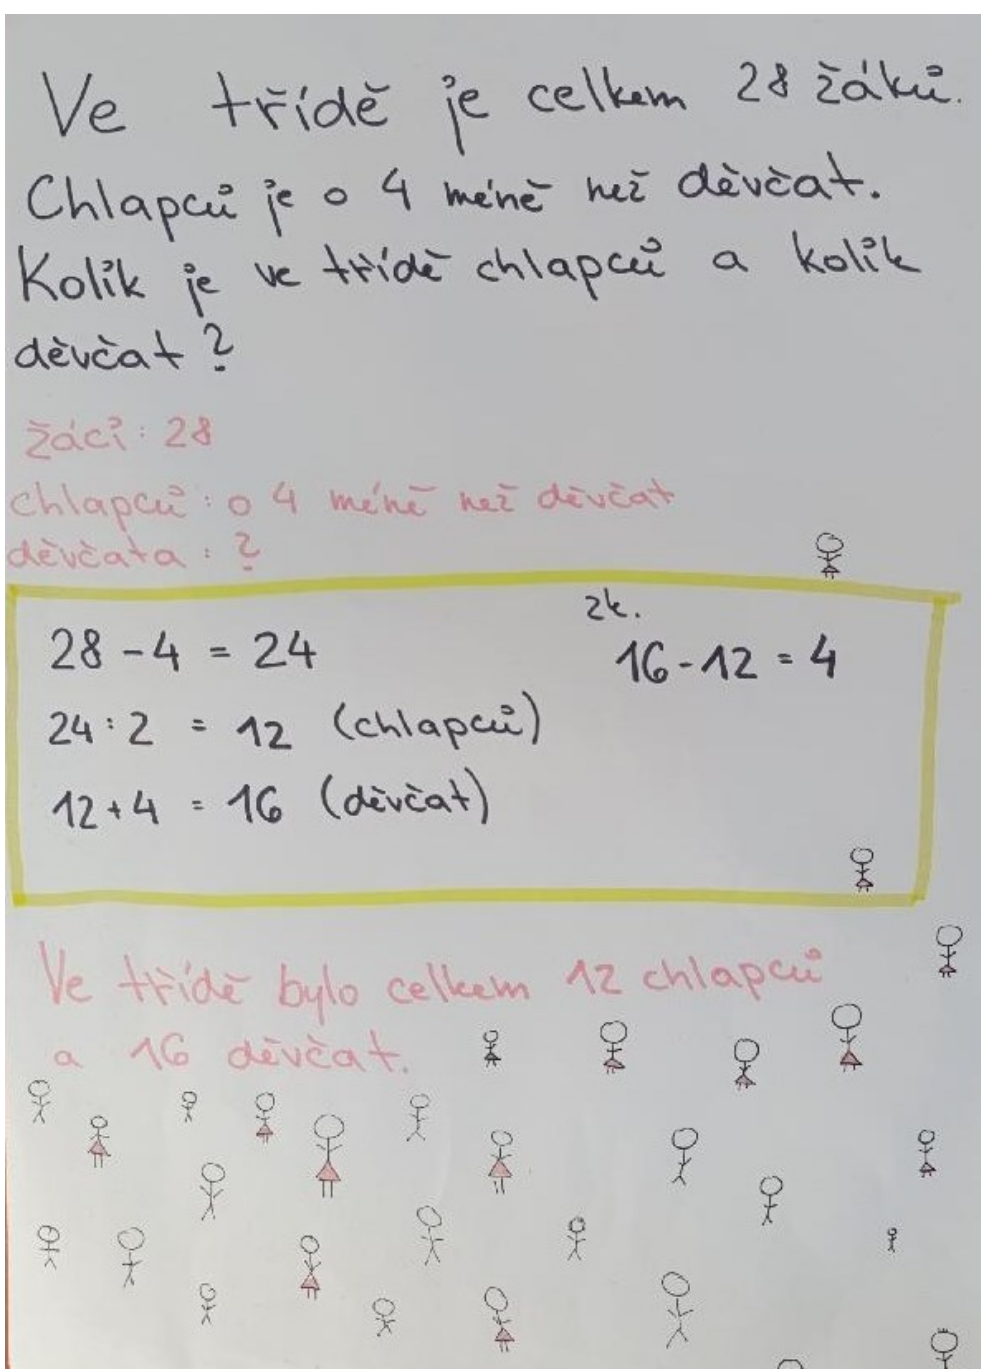 Ve třídě je celkem 28 žáků.
Chlapců je o 4 méně než děvčat.
Kolik je ve třídě chlapců a kolik
děvčat?
žáci: 28
chlapců: o 4 méně než děvčat
děvčata: ?
28 - 4 = 24
24 : 2 = 12 (chlapců)
12 + 4 = 16 (děvčat)
zk.
16 - 12 = 4
Ve třídě bylo celkem 12 chlapců
a 16 děvčat.